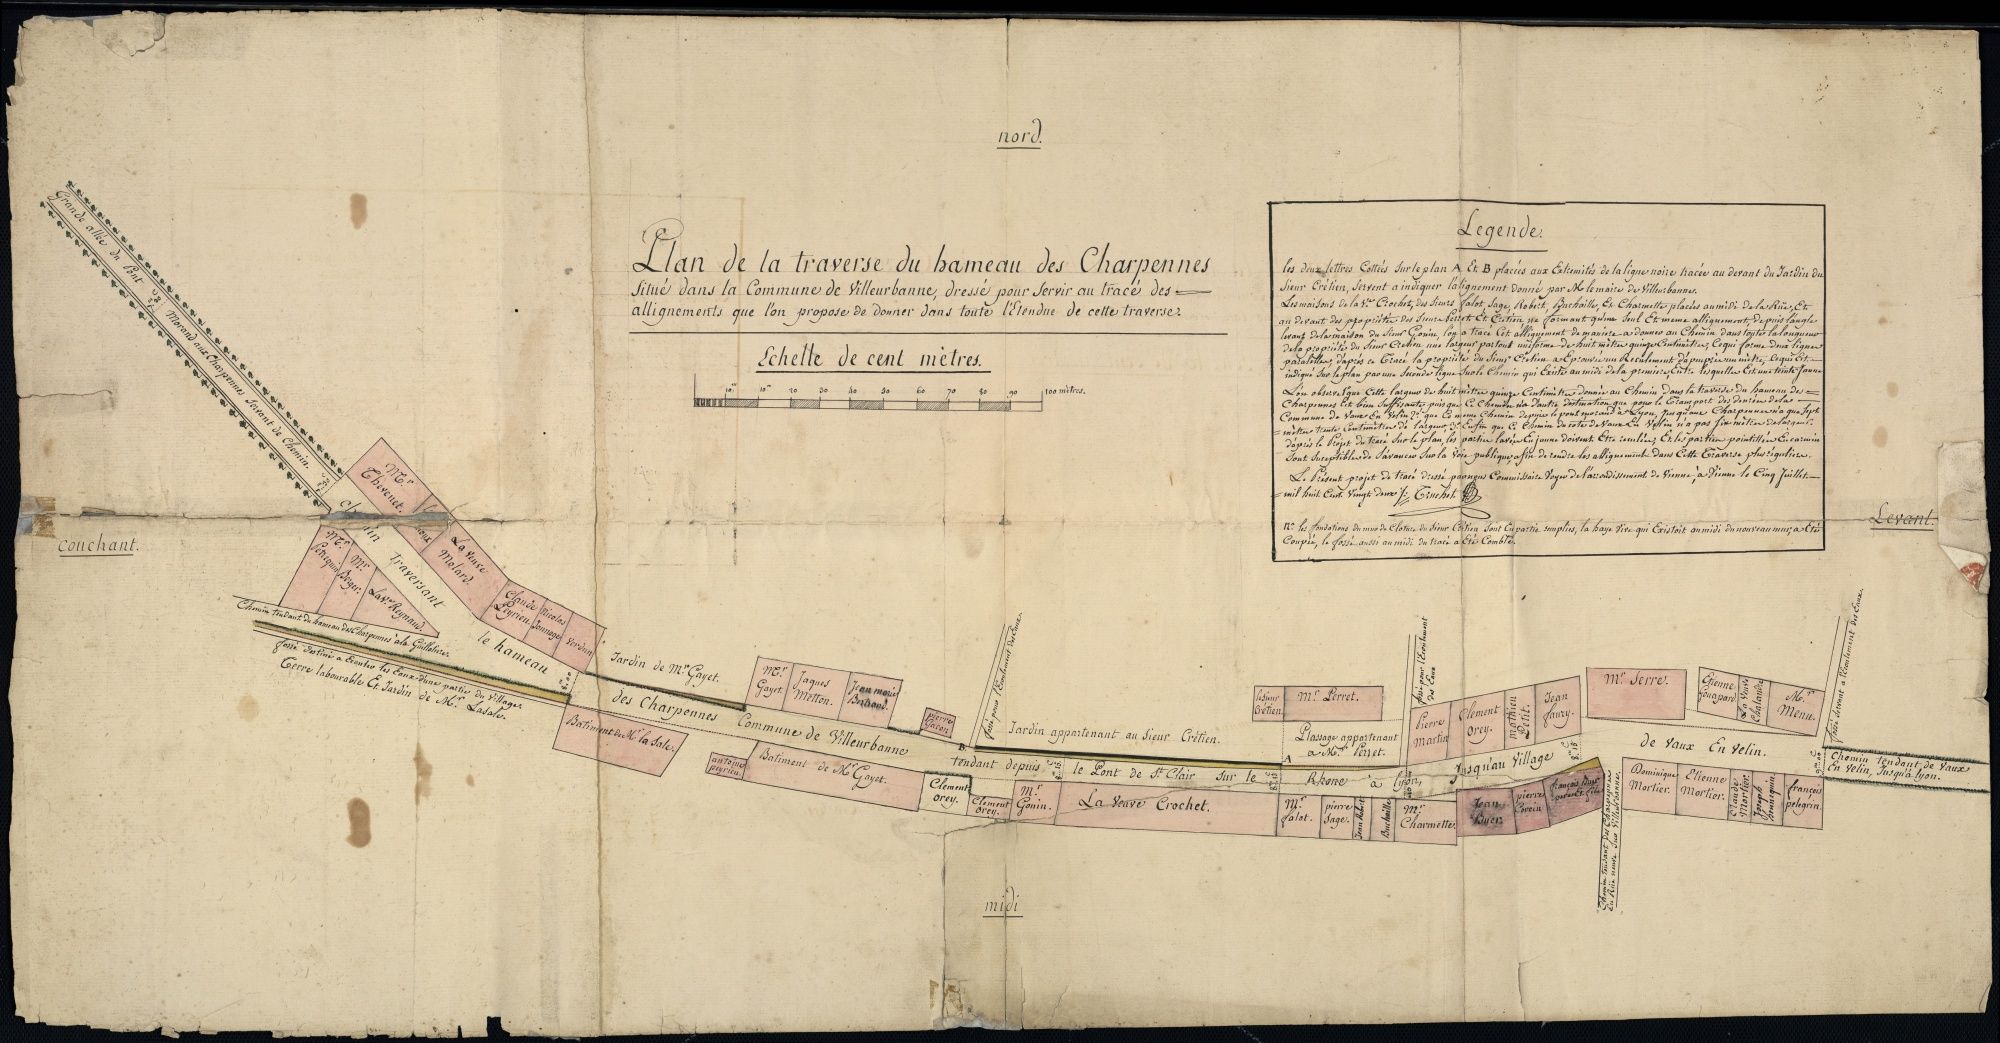 nord.
Plan de la traverse du hameau des Charpennes
Situé dans la Commune de Villeurbanne, dressé pour Servir au tracé des
allignements que l'on propose de donner dans toute l'Etendue de cette traverse.
Echelle de cent mètres.
10 10 20 30 40 50 60 70 80 90 100 mètres.
Legende.
les deux lettres Cottées Sur le plan A Et B placées aux Extremités de la ligne noire tracée au devant du Jardin du
Sieur Crétien, Servent a indiquer l'alignement donné par Mr le maire de Villeurbannes.
Les maisons de la Ve Crochet, des Sieurs falot, Sage, Robert, Buchaille, Et Charmette placées au midi de la Rüe, Et
au devant des propriétés des Sieurs Perret Et Crétien ne formant qu'un Seul Et meme allignement, depuis l'angle
levant de la maison du Sieur Gonin, l'on a tracé Cet allignement de maniere a donner au Chemin dans toute la longueur
de la propriété du Sieur Cretien une largeur partout uniforme de huit mètres quinze Centimètres, Ce qui forme deux lignes
paralelles; d'après ce Tracé la propriété du Sieur Crétien a Eprouvé un Reculement d'apeuprès un mètre, Ce qui Est
indiqué Sur le plan par une Seconde ligne Sur le Chemin qui Existe au midi de la premiere, Entre lesquelles Est une teinte Jaune
L'on observe que Cette largeur de huit mètres quinze Centimètres donnée au Chemin dans la traverse du hameau des
Charpennes Est bien Suffisante, puis que Ce Chemin n'a d'autre destination que pour le Transport des denrées de la
Commune de Vaux En Velin, que Ce meme Chemin depuis le pont morand a Lyon, Jusqu'aux Charpennes n'a que Sept
mètres trente Centimètres de largeur, Enfin que Ce Chemin du coté de Vaux En Velin n'a pas Six mètres de largeur.
d'après le Projet de tracé Sur le plan, les parties lavées En Jaune doivent Etre reculées, Et les parties pointillées En carmin
Sont Susceptibles de S'avancer Sur la Voie publique, afin de rendre les allignements dans Cette Traverse plus réguliers.
Le Présent projet de tracé dressé par nous Commissaire Voyer de l'arrondissement de Vienne, à Vienne le Cinq Juillet
mil huit Cent Vingt deux Truchot
na. les fondations du mur de Cloture du Sieur Crétien Sont En partie remplies, la haye Vive qui Existoit au midi du nouveau mur, a Eté
Coupée, le fossé aussi au midi du tracé a Eté Comblé.
couchant.
Levant.
Grande allée du Pont Morand aux Charpennes Servant de Chemin.
Mr Thévenet.
La Veuve Molard.
Claude Peyrieu.
Nicolas Jonnage
Verdun
Mr Boyer.
La Ve Reynaud.
Chemin tendant du hameau des Charpennes à la Guillotiere.
fossé destiné a Ecouler les Eaux d'une partie du Village.
Terre labourable Et Jardin de Mr. Lasale.
Chemin traversant le hameau des Charpennes Commune de Villeurbanne tendant depuis le Pont de St Clair Sur le Rhone à Lyon, Jusqu'au Village de Vaux En Velin.
Jardin de Mr Gayet.
Mr Gayet.
Jaques Metton.
Jean marie Bertrand.
pierre Gacon
Batiment de Mr la Sale.
antoine peyrieu.
Batiment de Mr Gayet.
Clement Orey.
Clement Orey.
Mr Gonin.
La Veuve Crochet.
fossé pour l'Ecoulement des Eaux.
Jardin appartenant au Sieur Crétien.
B
A
le Sieur Crétien
Mr Perret.
Passage appartenant
a Mr Perret.
fossé pour l'Ecoulement
des Eaux
Mr falot.
pierre Sage.
Jean Robert
Buchaille
Mr Charmette.
Pierre Martin
Clement Orey.
Mathieu Petit.
Jean faury.
Jean Buer
pierre Corein
Chemin tendant des Charpennes
Mr Serre.
Etienne Gonapard
La Veuve Chalande
Mr Menu.
Dominique Mortier.
Etienne Mortier.
Claude Mortier
Joseph
françois pelegrin
fossé Servant a l'Ecoulement des Eaux.
Chemin tendant de Vaux
En Velin, Jusqu'à Lyon.
midi